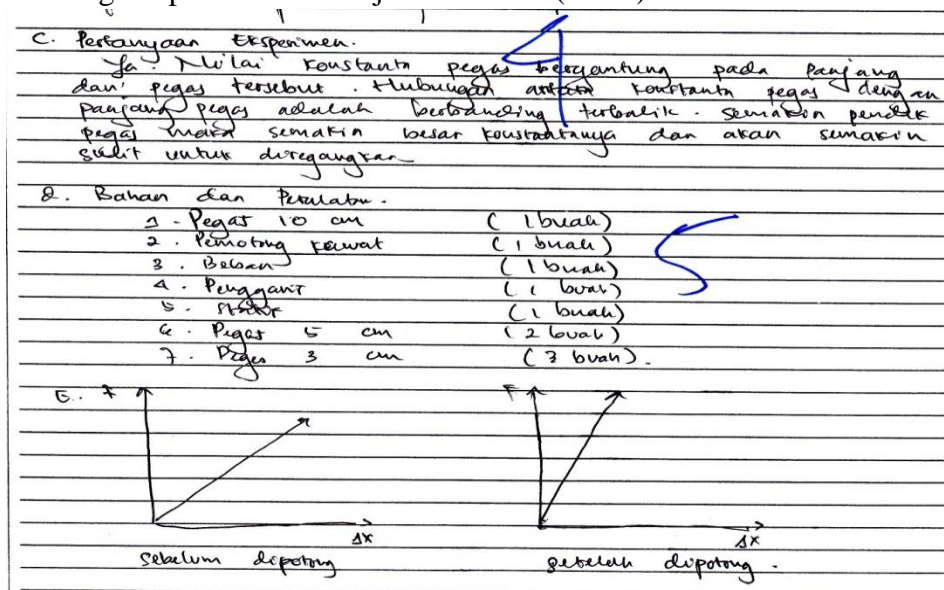 C. Pertanyaan Eksperimen.
Ya. Nilai konstanta pegas bergantung pada panjang
dari pegas tersebut. Hubungan antara konstanta pegas dengan
panjang pegas adalah berbanding terbalik. semakin pendek
pegas maka semakin besar konstantanya dan akan semakin
sulit untuk diregangkan
4
D. Bahan dan Peralatan.
1. Pegas 10 cm (1 buah)
2. Pemotong kawat (1 buah)
3. Beban (1 buah)
4. Penggaris (1 buah)
5. Statif (1 buah)
6. Pegas 5 cm (2 buah)
7. Pegas 3 cm (3 buah).
5
E. F F
Δx Δx
sebelum dipotong setelah dipotong.